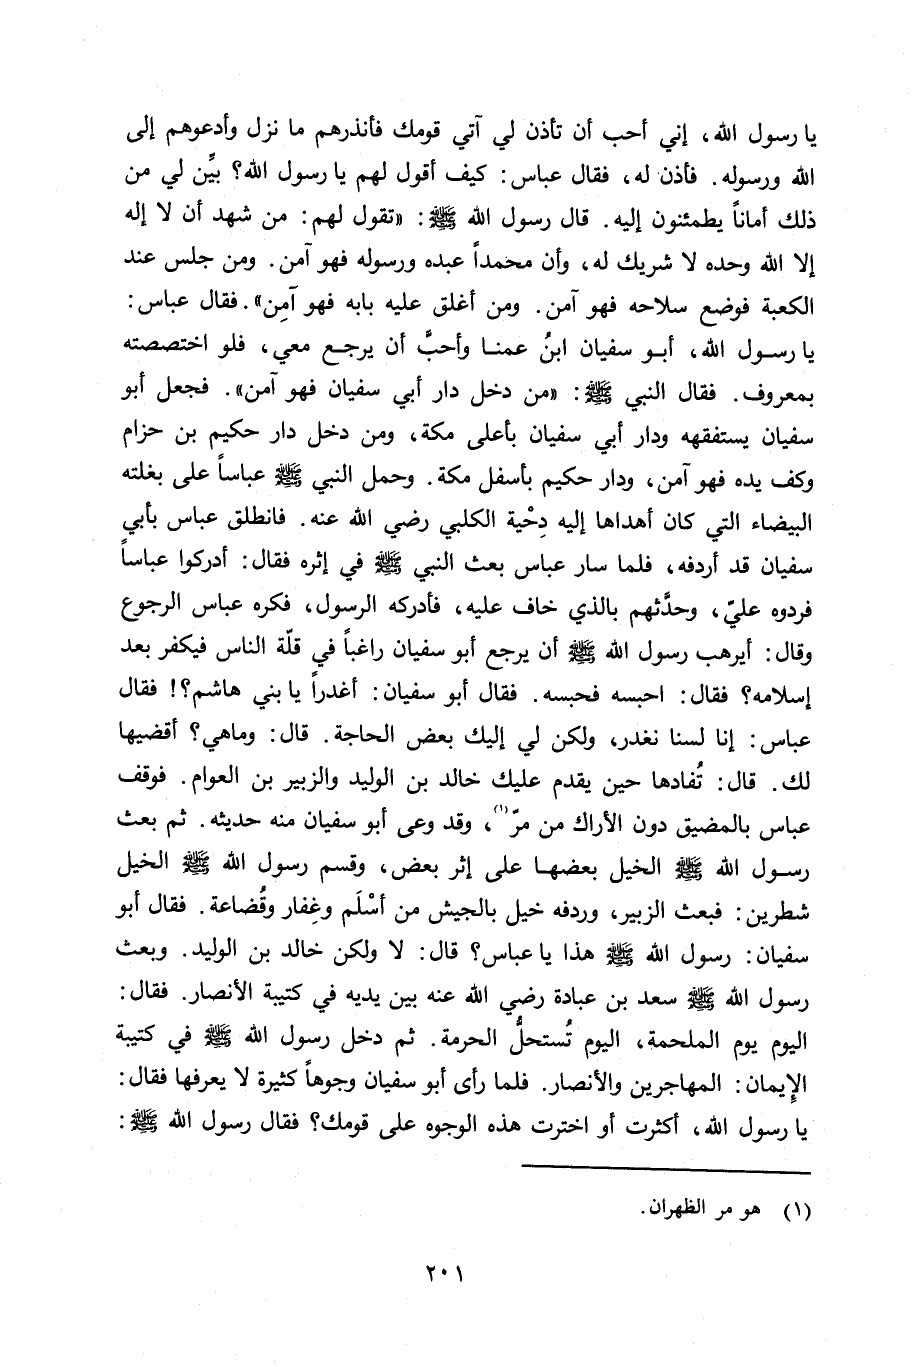 يا رسول الله، إني أحب أن تأذن لي آتي قومك فأنذرهم ما نزل وأدعوهم إلى
الله ورسوله. فأذن له، فقال عباس: كيف أقول لهم يا رسول الله؟ بيِّن لي من
ذلك أماناً يطمئنون إليه. قال رسول الله ﷺ: «تقول لهم: من شهد أن لا إله
إلا الله وحده لا شريك له، وأن محمداً عبده ورسوله فهو آمن. ومن جلس عند
الكعبة فوضع سلاحه فهو آمن. ومن أغلق عليه بابه فهو آمِن». فقال عباس:
يا رسول الله، أبو سفيان ابنُ عمنا وأحبَّ أن يرجع معي، فلو اختصصته
بمعروف. فقال النبي ﷺ: «من دخل دار أبي سفيان فهو آمن». فجعل أبو
سفيان يستفقهه ودار أبي سفيان بأعلى مكة، ومن دخل دار حكيم بن حزام
وكف يده فهو آمن، ودار حكيم بأسفل مكة. وحمل النبي ﷺ عباساً على بغلته
البيضاء التي كان أهداها إليه دِحْية الكلبي رضي الله عنه. فانطلق عباس بأبي
سفيان قد أردفه، فلما سار عباس بعث النبي ﷺ في إثره فقال: أدركوا عباساً
فردوه عليّ، وحدَّثهم بالذي خاف عليه، فأدركه الرسول، فكره عباس الرجوع
وقال: أيرهب رسول الله ﷺ أن يرجع أبو سفيان راغباً في قلّة الناس فيكفر بعد
إسلامه؟ فقال: احبسه فحبسه. فقال أبو سفيان: أغدراً يا بني هاشم؟! فقال
عباس: إنا لسنا نغدر، ولكن لي إليك بعض الحاجة. قال: وماهي؟ أقضيها
لك. قال: تُفادها حين يقدم عليك خالد بن الوليد والزبير بن العوام. فوقف
عباس بالمضيق دون الأراك من مرّ(١)، وقد وعى أبو سفيان منه حديثه. ثم بعث
رسول الله ﷺ الخيل بعضها على إثر بعض، وقسم رسول الله ﷺ الخيل
شطرين: فبعث الزبير، وردفه خيل بالجيش من أسْلَم وغِفار وقُضاعة. فقال أبو
سفيان: رسول الله ﷺ هذا يا عباس؟ قال: لا ولكن خالد بن الوليد. وبعث
رسول الله ﷺ سعد بن عبادة رضي الله عنه بين يديه في كتيبة الأنصار. فقال:
اليوم يوم الملحمة، اليوم تُستحلُّ الحرمة. ثم دخل رسول الله ﷺ في كتيبة
الإِيمان: المهاجرين والأنصار. فلما رأى أبو سفيان وجوهاً كثيرة لا يعرفها فقال:
يا رسول الله، أكثرت أو اخترت هذه الوجوه على قومك؟ فقال رسول الله ﷺ:
(١) هو مر الظهران.
٢٠١